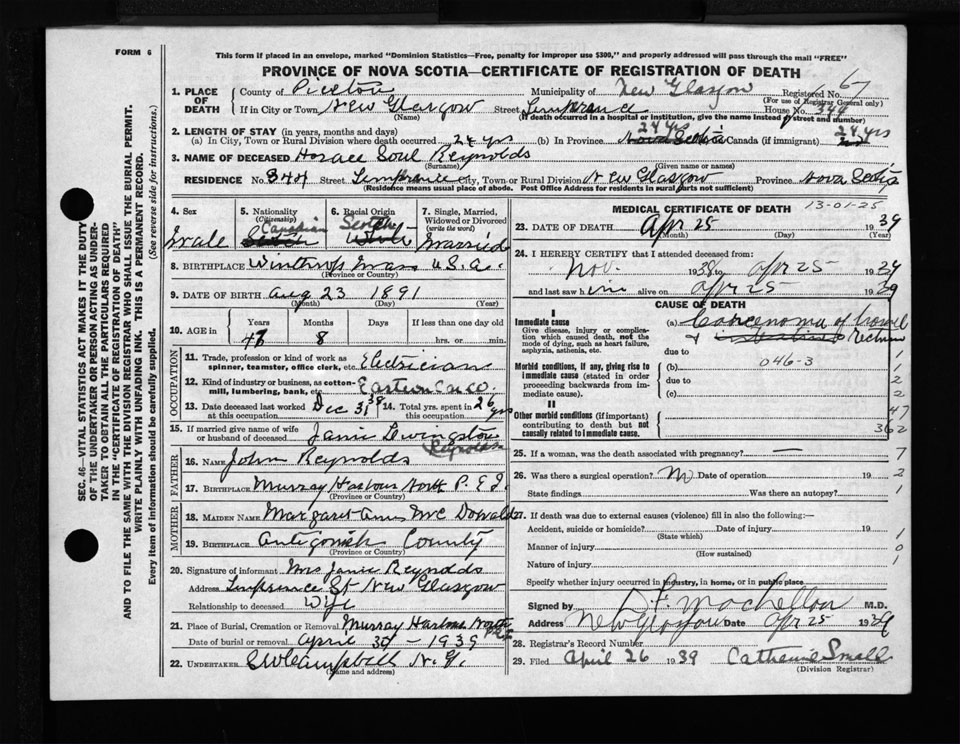 FORM 6
This form if placed in an envelope, marked "Dominion Statistics—Free, penalty for improper use $300," and properly addressed will pass through the mail "FREE"
PROVINCE OF NOVA SCOTIA—CERTIFICATE OF REGISTRATION OF DEATH
SEC. 46—VITAL STATISTICS ACT MAKES IT THE DUTY
OF THE UNDERTAKER OR PERSON ACTING AS UNDER-
TAKER TO OBTAIN ALL THE PARTICULARS REQUIRED
IN THE "CERTIFICATE OF REGISTRATION OF DEATH" AND TO FILE THE SAME WITH THE DIVISION REGISTRAR WHO SHALL ISSUE THE BURIAL PERMIT.
WRITE PLAINLY WITH UNFADING INK. THIS IS A PERMANENT RECORD.
Every item of information should be carefully supplied. (See reverse side for instructions.)
1. PLACE OF DEATH
County of Pictou Municipality of New Glasgow Registered No. 67
(For use of Registrar General only)
If in City or Town New Glasgow Street Temperance House No. 344
(Name) (If death occurred in a hospital or institution, give the name instead of street and number)
2. LENGTH OF STAY (in years, months and days)
(a) In City, Town or Rural Division where death occurred 24 yrs (b) In Province 24 yrs Nova Scotia Canada (if immigrant) 24 yrs
3. NAME OF DECEASED Horace Soul Reynolds
(Surname) (Given name or names)
RESIDENCE No. 344 Street Temperance City, Town or Rural Division New Glasgow Province Nova Scotia
(Residence means usual place of abode. Post Office Address for residents in rural parts not sufficient)
4. Sex Male
5. Nationality (Citizenship) Canadian Scotch
6. Racial Origin Scotch White
7. Single, Married, Widowed or Divorced (write the word) Married
8. BIRTHPLACE Winthrop Mass U.S.A.
(Province or Country)
9. DATE OF BIRTH Aug 23 1891
(Month) (Day) (Year)
10. AGE in Years Months Days If less than one day old
47 8 hrs. or min.
OCCUPATION
11. Trade, profession or kind of work as spinner, teamster, office clerk, etc. Electrician
12. Kind of industry or business, as cotton-mill, lumbering, bank, etc. Eastern Car Co.
13. Date deceased last worked at this occupation Dec 31, 38 14. Total yrs. spent in this occupation 26 yrs
15. If married give name of wife or husband of deceased Janie Livingstone Reynolds
FATHER
16. NAME John Reynolds
17. BIRTHPLACE Murray Harbour North P.E.I.
(Province or Country)
MOTHER
18. MAIDEN NAME Margaret Ann McDonald
19. BIRTHPLACE Antigonish County
(Province or Country)
20. Signature of informant Mrs Janie Reynolds
Address Temperance St New Glasgow
Relationship to deceased Wife
21. Place of Burial, Cremation or Removal Murray Harbour North P.E.I.
Date of burial or removal April 30 - 1939
22. UNDERTAKER C W Campbell N.G.
(Name and address)
MEDICAL CERTIFICATE OF DEATH 13-01-25
23. DATE OF DEATH Apr 25 1939
(Month) (Day) (Year)
24. I HEREBY CERTIFY that I attended deceased from:
Nov. 1938 to Apr 25 1939
and last saw him alive on Apr 25 1939
CAUSE OF DEATH
I
Immediate cause
Give disease, injury or complication which caused death, not the mode of dying, such as heart failure, asphyxia, asthenia, etc.
(a) Carcenoma of bowel & Rectum
due to
Morbid conditions, if any, giving rise to immediate cause (stated in order proceeding backwards from immediate cause).
(b) 046-3
due to
(c)
1
1
2
2
II
Other morbid conditions (if important) contributing to death but not causally related to immediate cause.
47
362
25. If a woman, was the death associated with pregnancy? — 7
26. Was there a surgical operation? No Date of operation 19 2
State findings Was there an autopsy? 1
27. If death was due to external causes (violence) fill in also the following:—
Accident, suicide or homicide? Date of injury 19 1
(State which)
Manner of injury 0
(How sustained)
Nature of injury 1
Specify whether injury occurred in industry, in home, or in public place
Signed by M.D.
Address New Glasgow Date Apr 25 1939
28. Registrar's Record Number
29. Filed April 26 1939 Catherine Small
(Division Registrar)